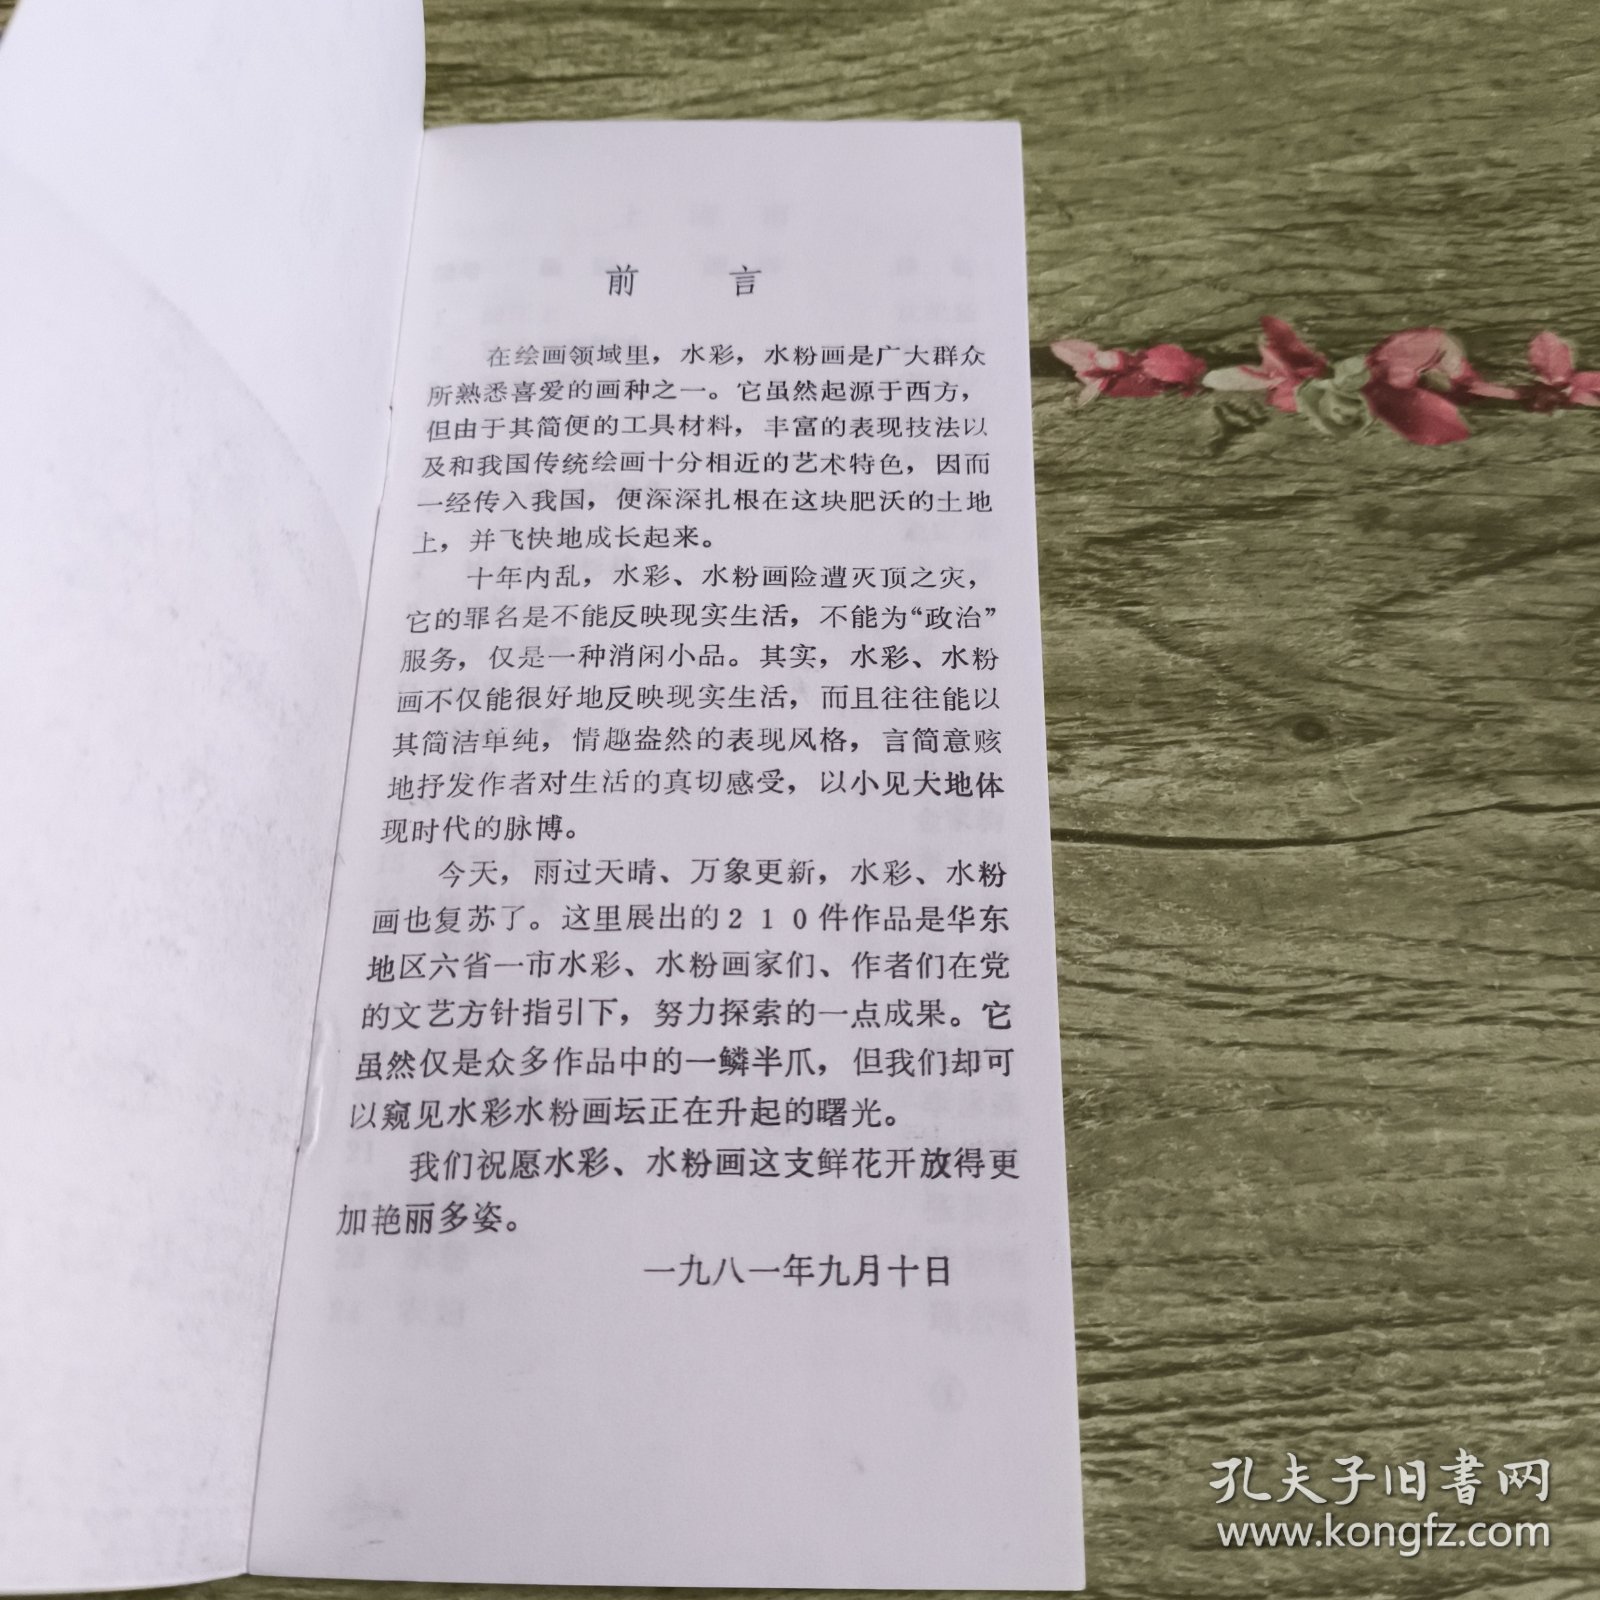 前言
在绘画领域里，水彩，水粉画是广大群众
所熟悉喜爱的画种之一。它虽然起源于西方，
但由于其简便的工具材料，丰富的表现技法以
及和我国传统绘画十分相近的艺术特色，因而
一经传入我国，便深深扎根在这块肥沃的土地
上，并飞快地成长起来。
十年内乱，水彩、水粉画险遭灭顶之灾，
它的罪名是不能反映现实生活，不能为“政治”
服务，仅是一种消闲小品。其实，水彩、水粉
画不仅能很好地反映现实生活，而且往往能以
其简洁单纯，情趣盎然的表现风格，言简意赅
地抒发作者对生活的真切感受，以小见大地体
现时代的脉博。
今天，雨过天晴、万象更新，水彩、水粉
画也复苏了。这里展出的210件作品是华东
地区六省一市水彩、水粉画家们、作者们在党
的文艺方针指引下，努力探索的一点成果。它
虽然仅是众多作品中的一鳞半爪，但我们却可
以窥见水彩水粉画坛正在升起的曙光。
我们祝愿水彩、水粉画这支鲜花开放得更
加艳丽多姿。
一九八一年九月十日
孔夫子旧书网
www.kongfz.com